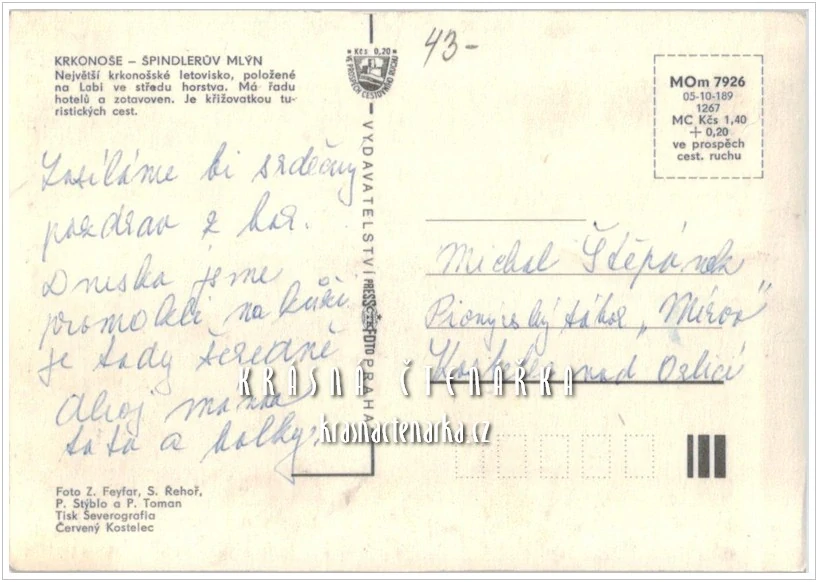 KRKONOŠE – ŠPINDLERŮV MLÝN
Největší krkonošské letovisko, položené
na Labi ve středu horstva. Má řadu
hotelů a zotavoven. Je křižovatkou tu-
ristických cest.
Zasíláme ti srdečný
pozdrav z hor.
Dneska jsme
promokli na kůži
je tady šeredně
Ahoj mamka
táta a holky.
Foto Z. Feyfar, S. Řehoř,
P. Stýblo a P. Toman
Tisk Severografia
Červený Kostelec
Kčs 0,20
VE PROSPĚCH CESTOVNÍHO RUCHU
VYDAVATELSTVÍ PRESSFOTO PRAHA
43-
MOm 7926
05-10-189
1267
MC Kčs 1,40
+ 0,20
ve prospěch
cest. ruchu
Michal Štěpánek
Pionýrský tábor „Mírov"
Kostelec nad Orlicí
KRÁSNÁ ČTENÁŘKA
krasnactenarka.cz